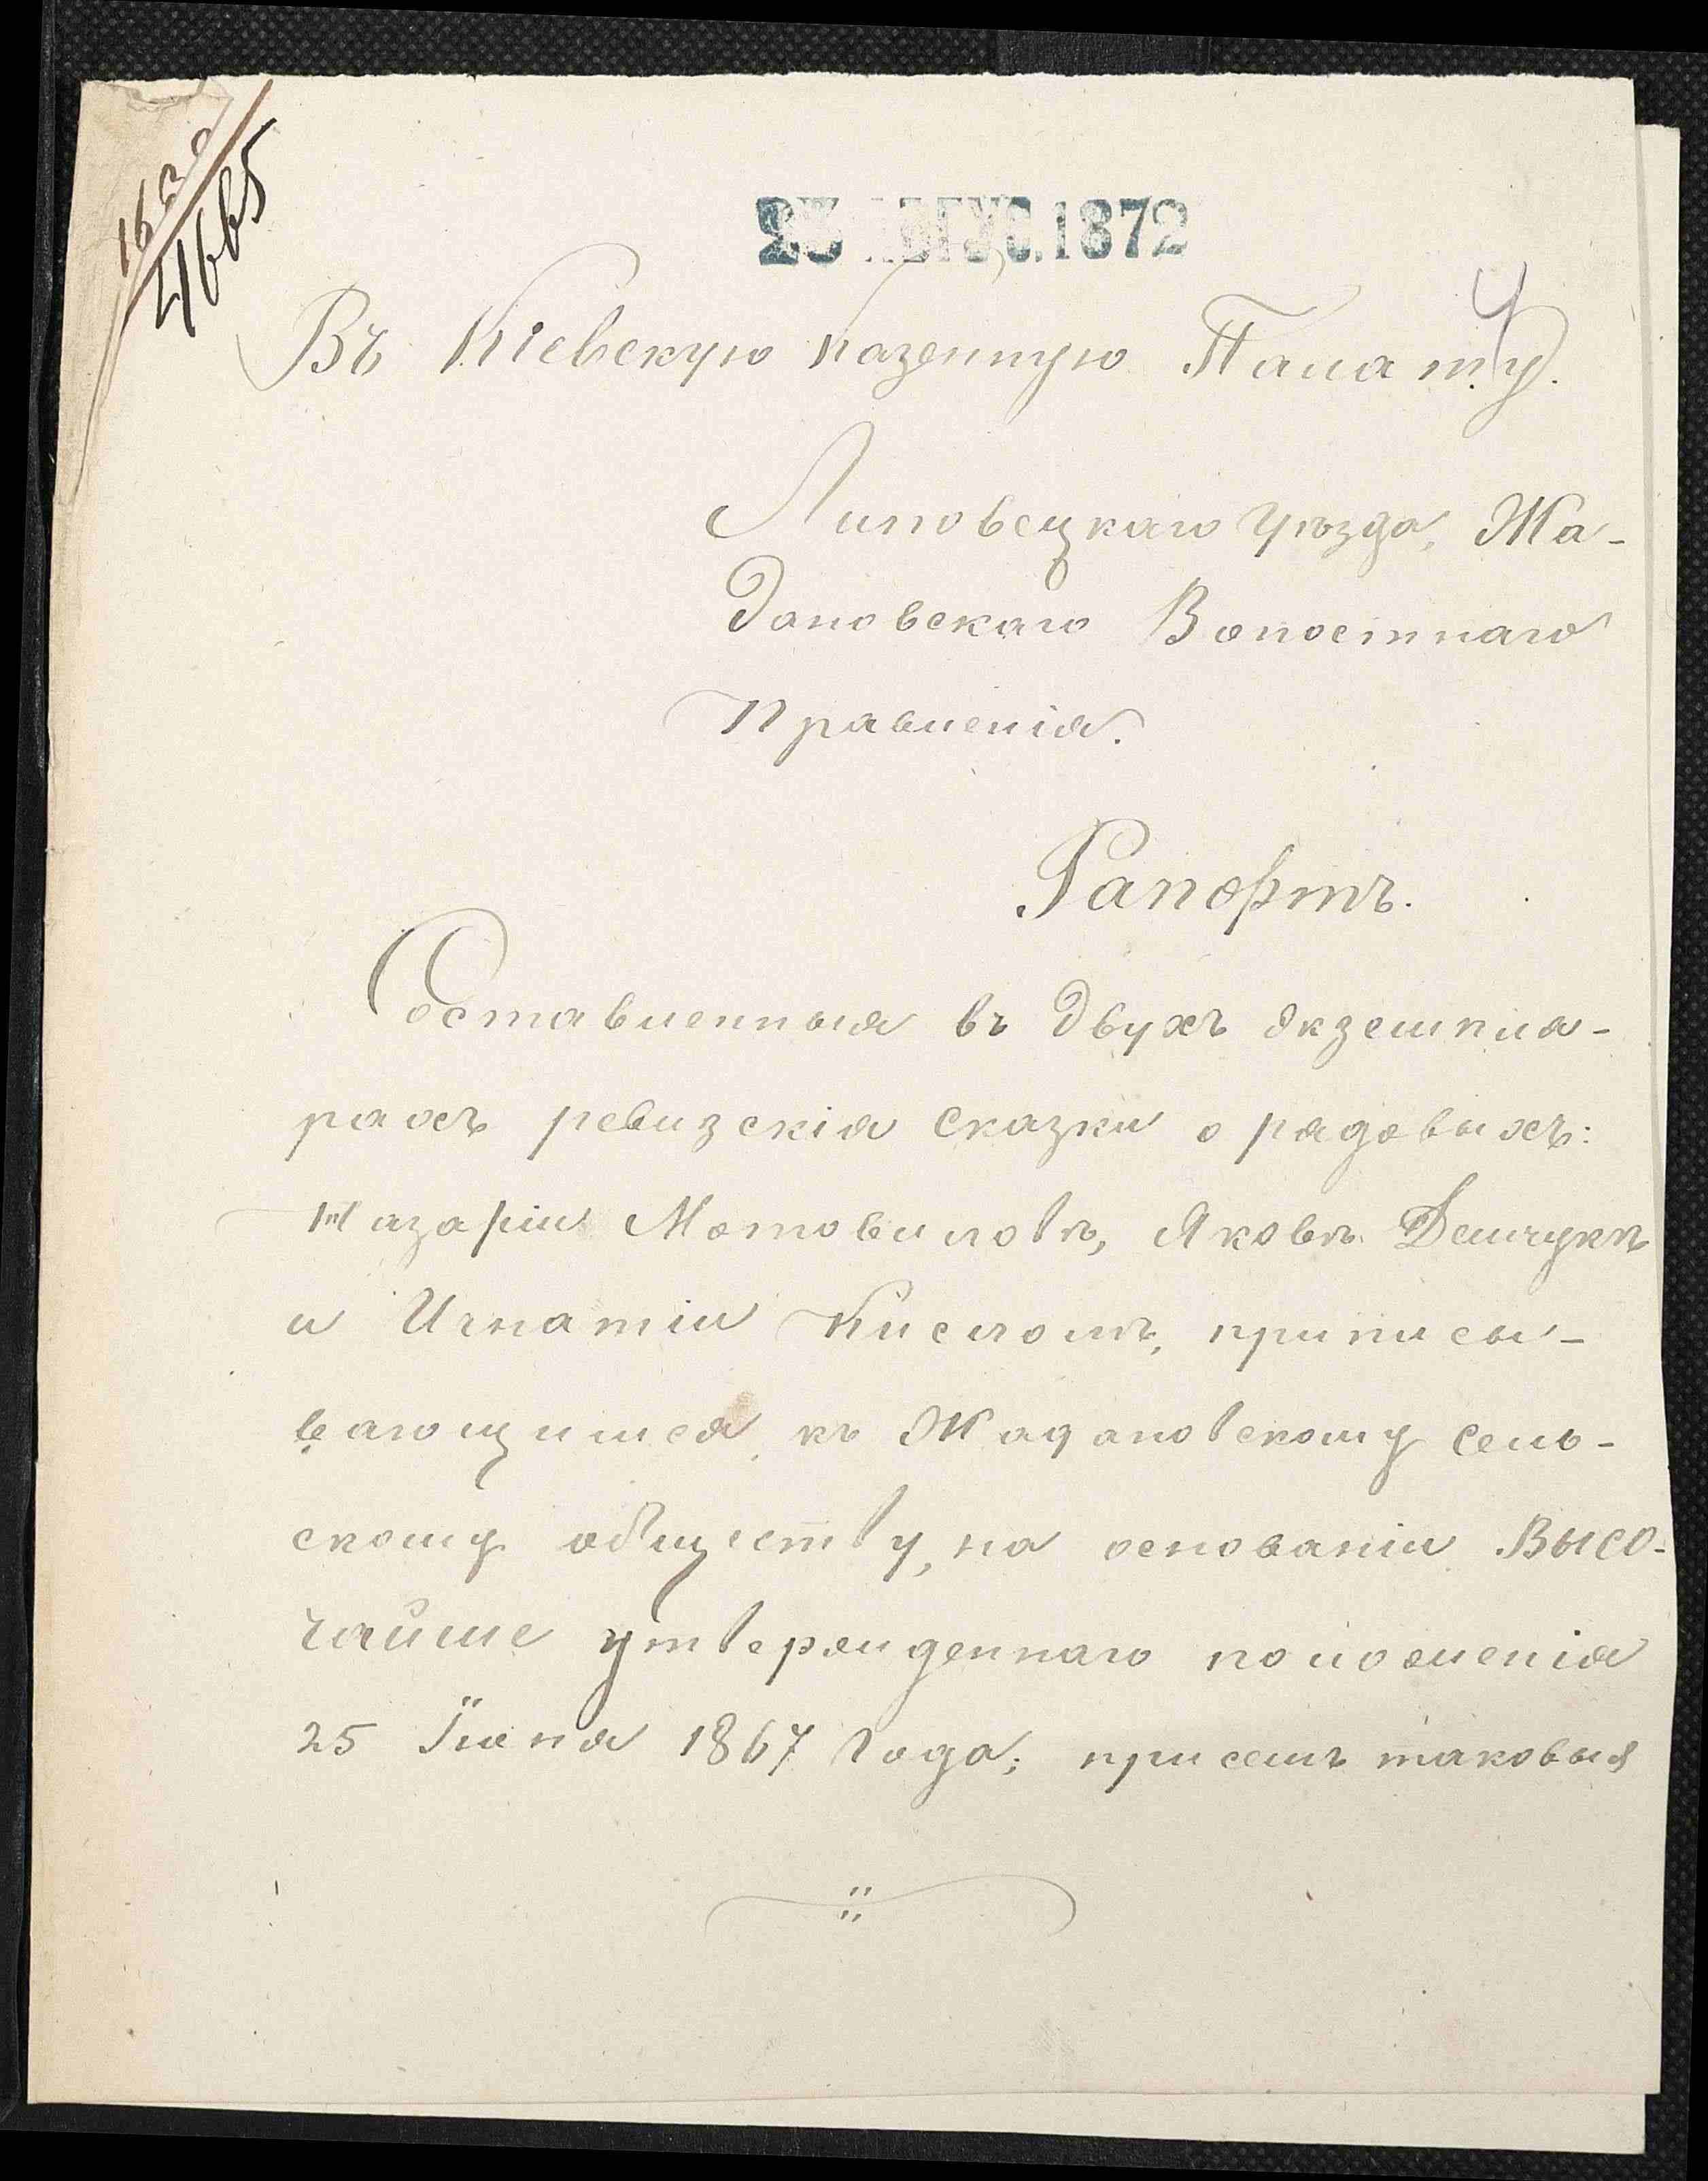 4665
АВГУС.1872
4
Въ Кіевскую Казенную Палату.
Липовецкаго Уѣзда, Жа-
дановскаго Волостнаго
Правленія.
Рапортъ.
Составленныя въ двухъ экземпля-
рахъ ревизскія сказки о рядовыхъ:
Назаріи Мотовиловѣ, Яковѣ Демчукѣ
и Игнатіи Кисломъ, приписы-
вающимся къ Жадановскому сель-
скому обществу, на основаніи Высо-
чайше утвержденнаго положенія
25 Іюня 1867 Года; при семъ таковыя